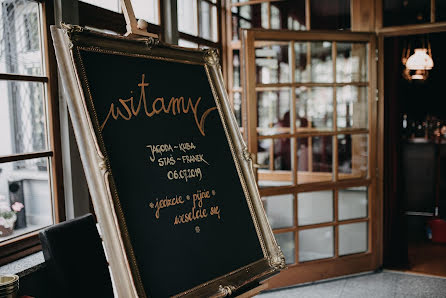 witamy
JAGODA ~ KUBA
STAŚ ~ FRANEK
06.07.2019
jedzcie • pijcie
weselcie się